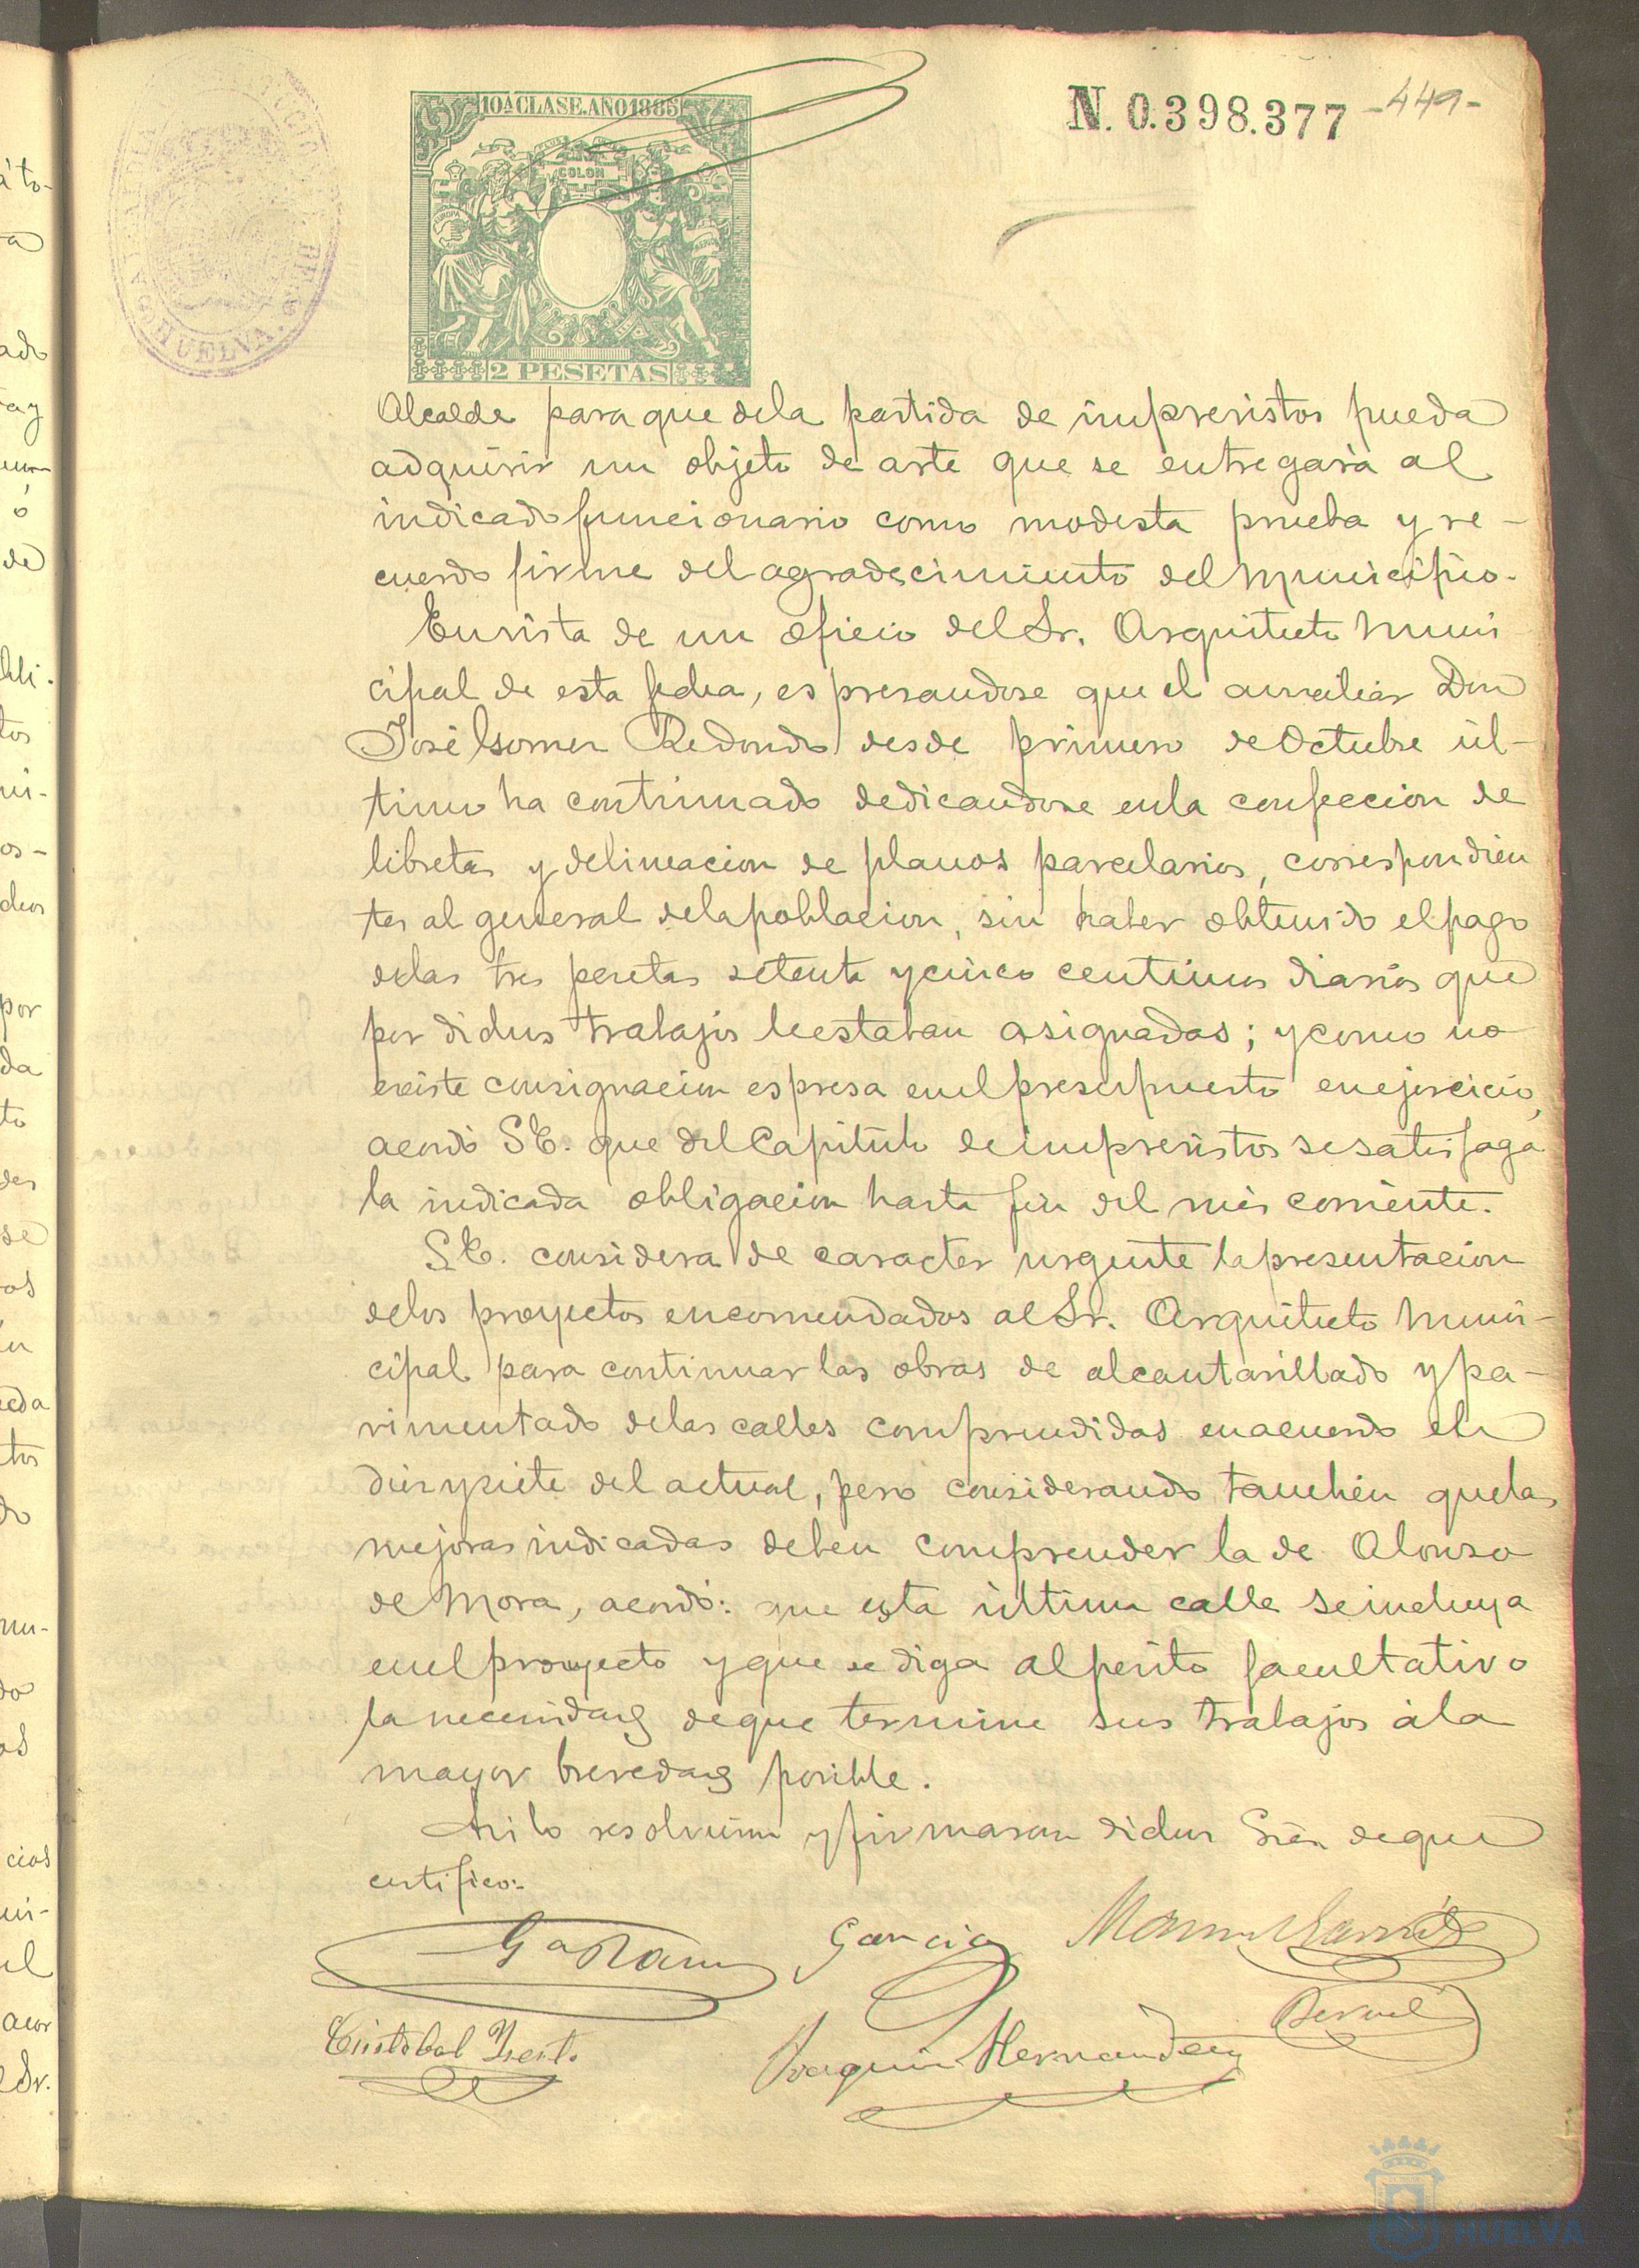 10ª CLASE. AÑO 1885
COLON
EUROPA
2 PESETAS
N. 0.398.377
-449-
HUELVA
Alcalde para que dela partida de imprevistos pueda
adquirir un objeto de arte que se entregará al
indicado funcionario como modesta prueba y re-
cuerdo firme del agradecimiento del Municipio.
En vista de un oficio del Sr. Arquitecto Muni
cipal de esta fecha, espresandose que el auxiliar Don
José Redondo desde primero de Octubre úl-
timo ha continuado dedicandose enla confeccion de
libretas y delineacion de planos parcelarios, correspondien
tes al general dela poblacion, sin haber obtenido el pago
delas tres pesetas setenta y cinco centimos diarios que
por dichos trabajos le estaban asignadas; y como no
existe consignacion espresa en el presupuesto en ejercicio,
acordó S.E. que del Capitulo de imprevistos se satisfaga
la indicada obligacion hasta fin del mes corriente.
S.E. considera de caracter urgente la presentacion
delos proyectos encomendados al Sr. Arquitecto Muni-
cipal para continuar las obras de alcantarillado y pa-
vimentado delas calles comprendidas en acuerdo el
diez y siete del actual, pero considerando tambien que las
mejoras indicadas deben comprender la de Alonso
de Mora, acordó: que esta última calle se incluya
en el proyecto y que se diga al perito facultativo
la necesidad de que termine sus trabajos ála
mayor brevedad posible.
Asi lo resolvieron y firmaran dichos Sres. de que
certifico:-
Gª Ramos Garcia Manuel Garrido
Cristobal Joaquin Hernandez Bernal
HUELVA